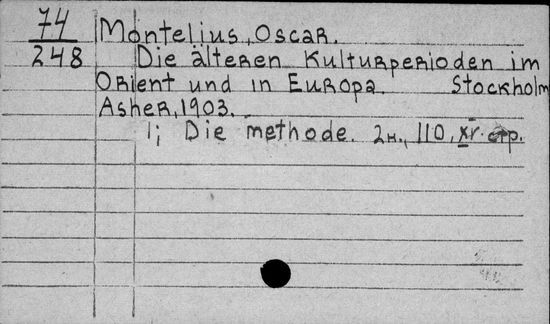 74 Montelius, Oscar.
248 Die älteren Kulturperioden im
Orient und in Europa. Stockholm
Asher, 1903.
1; Die methode. 2н., 110, XV. стр.